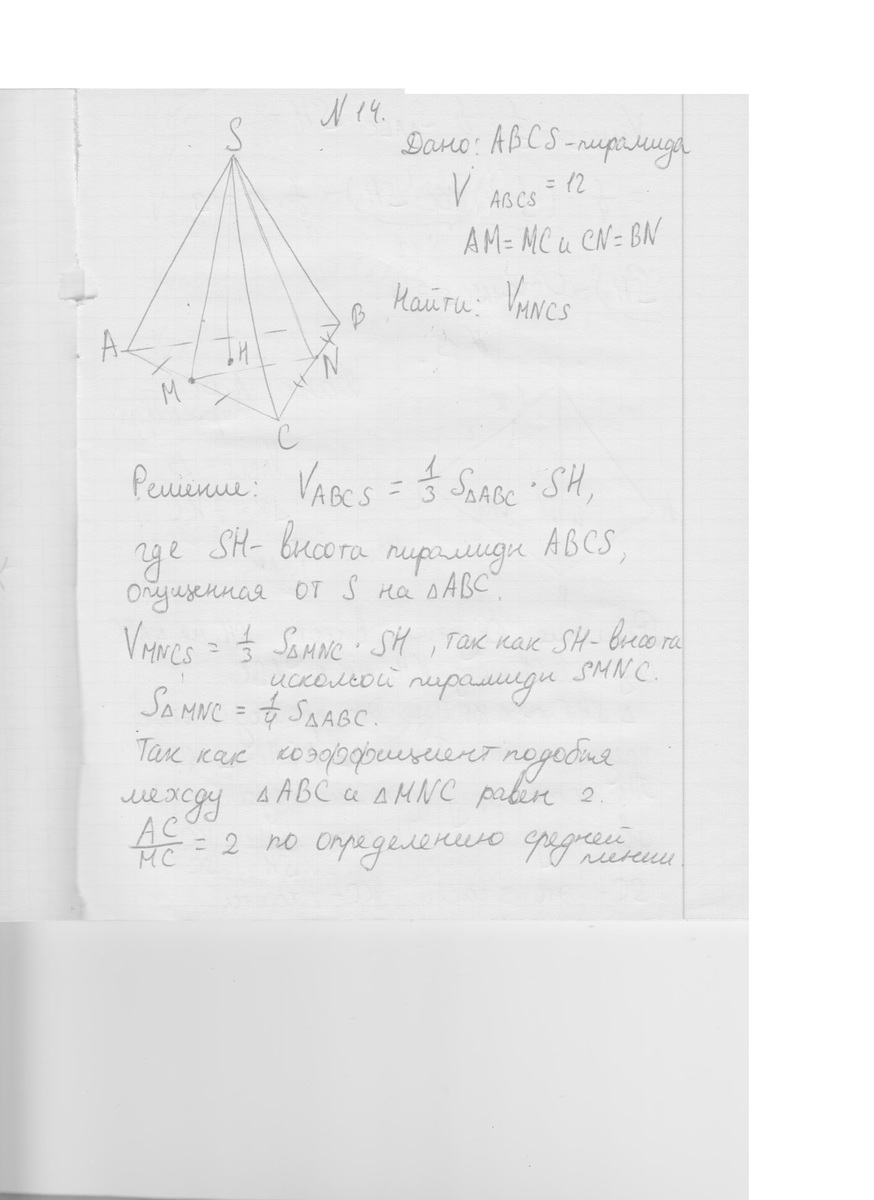 N 14.
S
Дано: ABCS - пирамида
V ABCS = 12
AM = MC и CN = BN
Найти: V MNCS
A
B
H
M
N
C
Решение: V ABCS = 1/3 S△ABC · SH,
где SH - высота пирамиды ABCS,
опущенная от S на △ABC.
V MNCS = 1/3 S△MNC · SH, так как SH - высота
искомой пирамиды SMNC.
S△MNC = 1/4 S△ABC.
Так как коэффициент подобия
между △ABC и △MNC равен 2.
AC/MC = 2 по определению средней
линии.